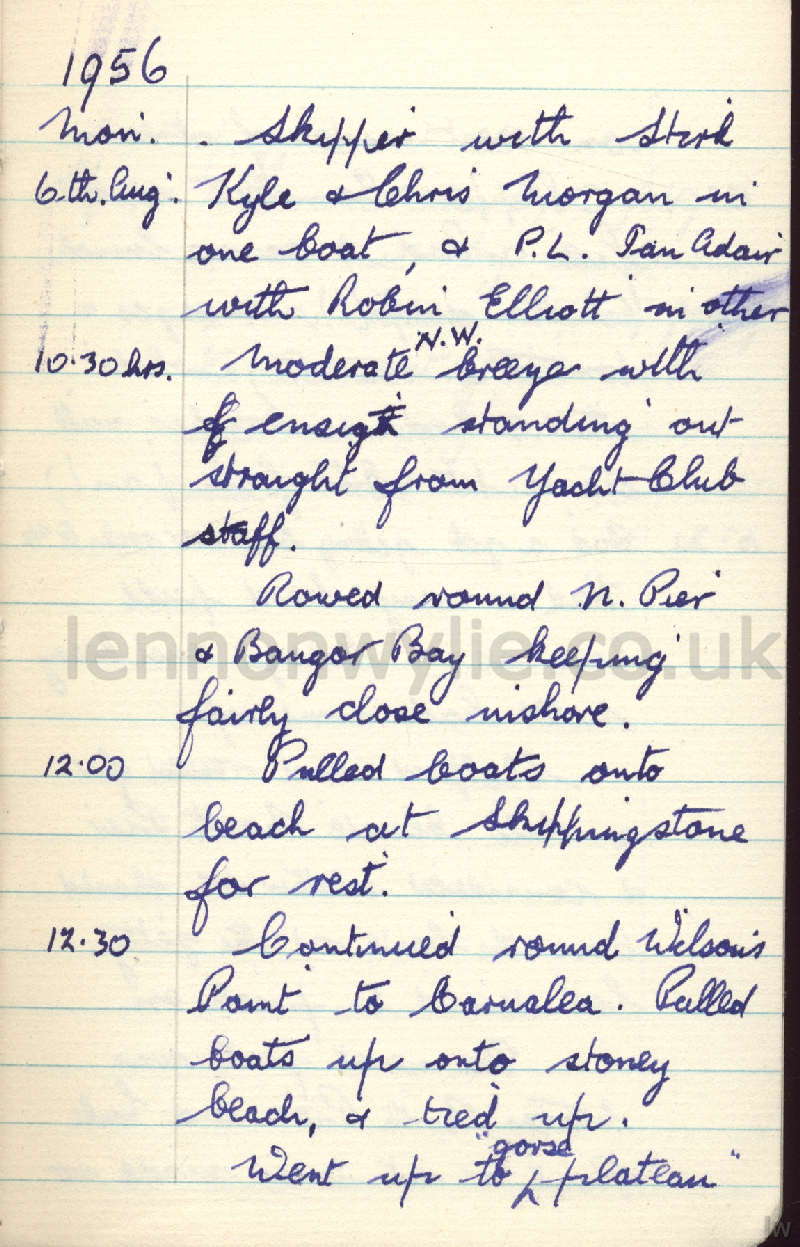 1956
Mon. . Skipper with Stird
6.th. Aug. Kyle & Chris Morgan in
one boat, & P.L. Ian Adair
with Robin Elliott in other
10.30 hrs. Moderate N.W. breeze with
ensign standing out
straight from Yacht Club
staff.
Rowed round N. Pier
& Bangor Bay keeping
fairly close inshore.
12.00 Pulled boats onto
beach at Skippingstone
for rest.
12.30 Continued round Wilson's
Point to Carnalea. Pulled
boats up onto stoney
beach, & tied up.
Went up to "gorse plateau"
lennonwylie.co.uk
lw